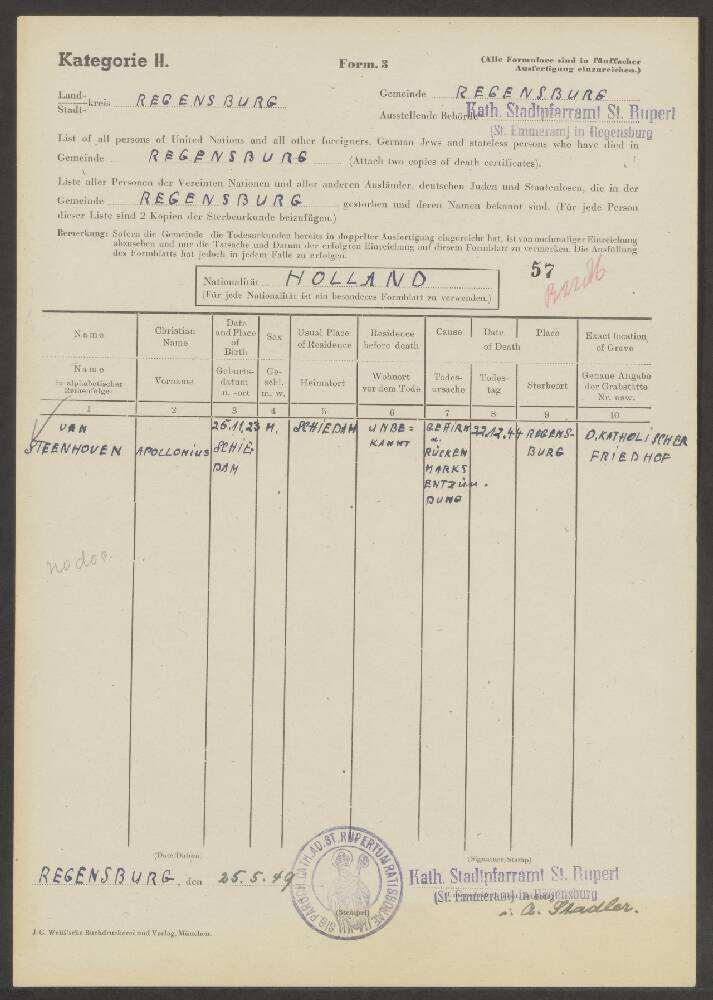 Kategorie II.
Form. 3
(Alle Formulare sind in fünffacher
Ausfertigung einzureichen.)
Land-
Stadt- kreis REGENSBURG
Gemeinde REGENSBURG
Ausstellende Behörde Kath. Stadtpfarramt St. Rupert
(St. Emmeram) in Regensburg
List of all persons of United Nations and all other foreigners, German Jews and stateless persons who have died in
Gemeinde REGENSBURG (Attach two copies of death certificates).
Liste aller Personen der Vereinten Nationen und aller anderen Ausländer, deutschen Juden und Staatenlosen, die in der
Gemeinde REGENSBURG gestorben und deren Namen bekannt sind. (Für jede Person
dieser Liste sind 2 Kopien der Sterbeurkunde beizufügen.)
Bemerkung: Sofern die Gemeinde die Todesurkunden bereits in doppelter Ausfertigung eingereicht hat, ist von nochmaliger Einreichung
abzusehen und nur die Tatsache und Datum der erfolgten Einreichung auf diesem Formblatt zu vermerken. Die Ausfüllung
des Formblatts hat jedoch in jedem Falle zu erfolgen.
57
Nationalität HOLLAND
(Für jede Nationalität ist ein besonderes Formblatt zu verwenden.)
Name Christian Name Date and Place of Birth Sex Usual Place of Residence Residence before death Cause Date Place of Death Exact location of Grave
Name in alphabetischer Reihenfolge Vorname Geburts-datum u. -ort Ge-schl. m. w. Heimatort Wohnort vor dem Tode Todes-ursache Todes-tag Sterbeort Genaue Angabe der Grabstätte Nr. usw.
1 2 3 4 5 6 7 8 9 10
VAN STEENHOVEN APOLLONIUS 26.11.23 SCHIE-DAM M. SCHIEDAM UNBE=KANNT GEHIRN u. RÜCKEN MARKS ENTZÜN. DUNG 22.12.44 REGENS-BURG O. KATHOLISCHER FRIEDHOF
no doc.
(Date/Datum)
REGENSBURG, den 25.5.49
(Signature/Stamp)
Kath. Stadtpfarramt St. Rupert
(St. Emmeram) in Regensburg
(Stempel)
A. Stadler.
J. G. Weiß'sche Buchdruckerei und Verlag, München.